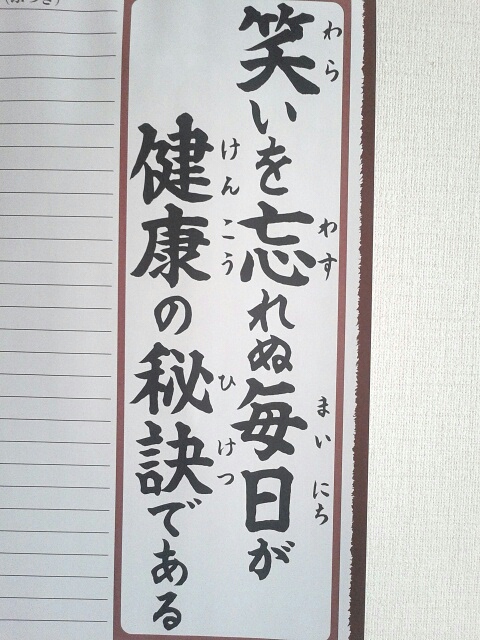 笑いを忘れぬ毎日が
わら わす まいにち
健康の秘訣である
けんこう ひけつ